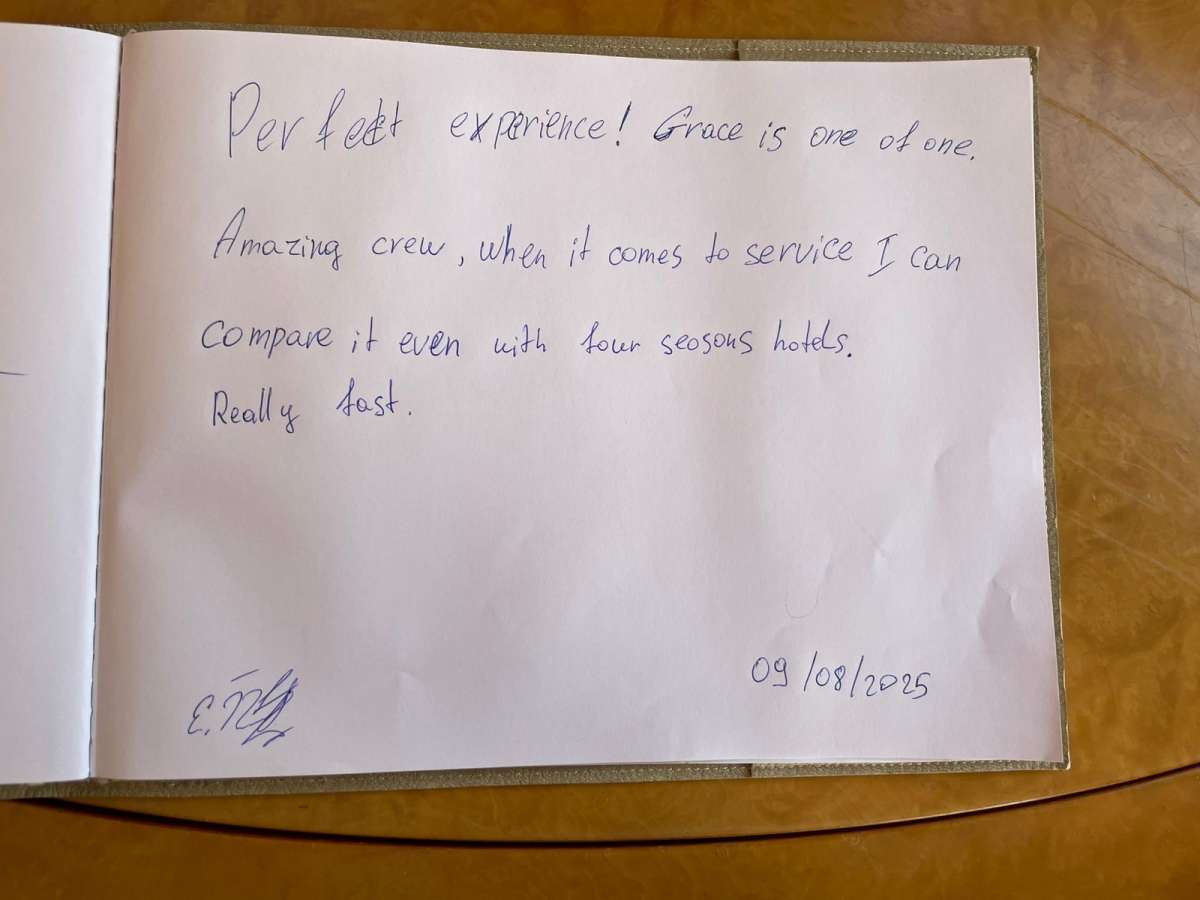 Perfect experience! Grace is one of one.
Amazing crew, when it comes to service I can
compare it even with four seosons hotels.
Really fast.
09/08/2025